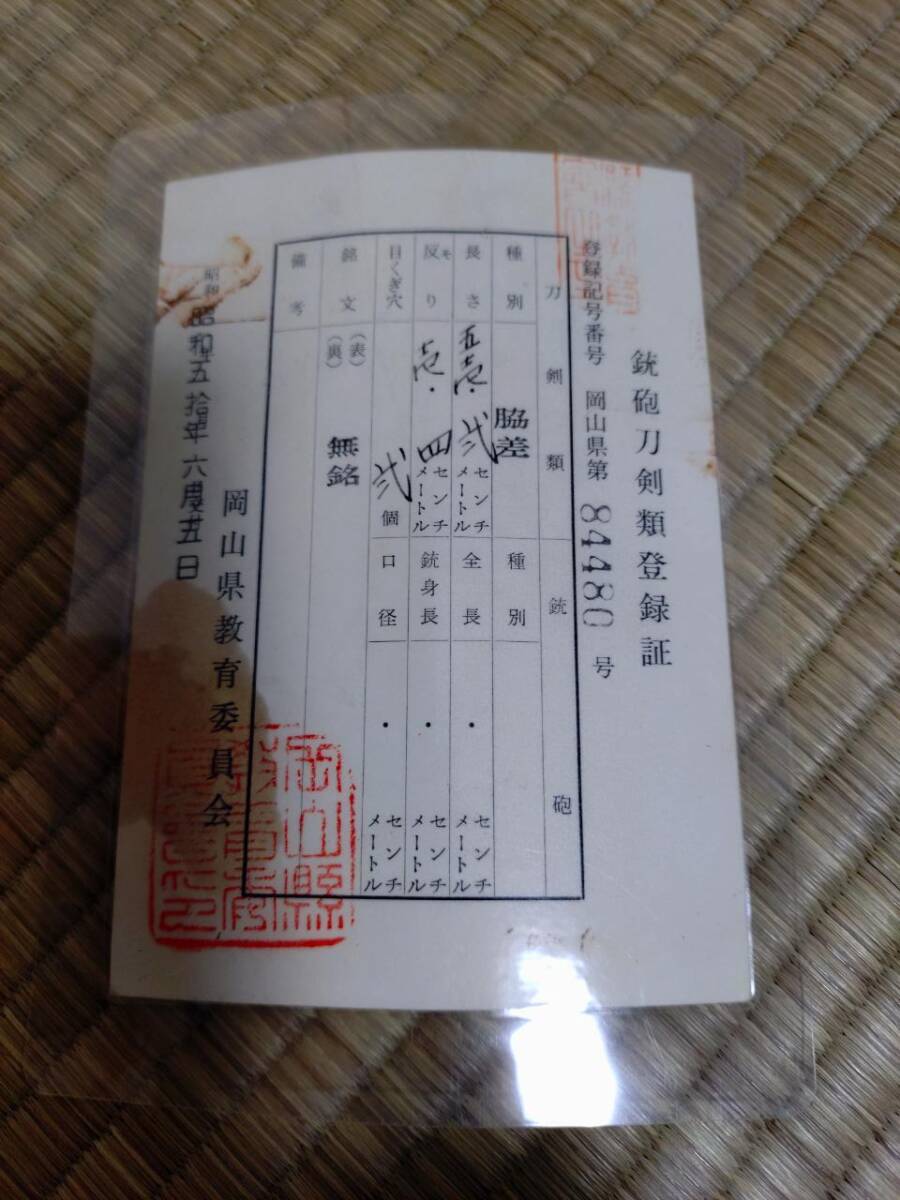 銃砲刀剣類登録証
登録記号番号 岡山県第 84480 号
刀剣類 銃砲
種別 脇差 種別
長さ 五壱.弐 センチメートル 全長 . センチメートル
反(ソ)り 壱.四 センチメートル 銃身長 . センチメートル
目くぎ穴 弐個 口径 . センチメートル
銘文 (表)
(裏) 無銘
備考
岡山県教育委員会
昭和 昭和五拾年六月廿五日